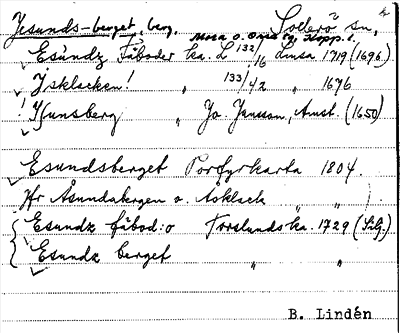 Jesunds-berget, berg, Sollerö sn,
Mora o. Orsa tg, Kopp. l.
Esundz Fäboder ka. L 132/16 Lmsa 1719 (1696)
Ysklacken! " 133/42 " 1676
! Isunsberg " Jo. Jansson, Amst. (1650)
Esundsberget Porfyrkarta 1804.
Hr Åsundabergen o. Åsklack " " )
Esundz fäbod:o Torslunds ka. 1729 (Silj.)
Esundz berget " "
B. Lindén